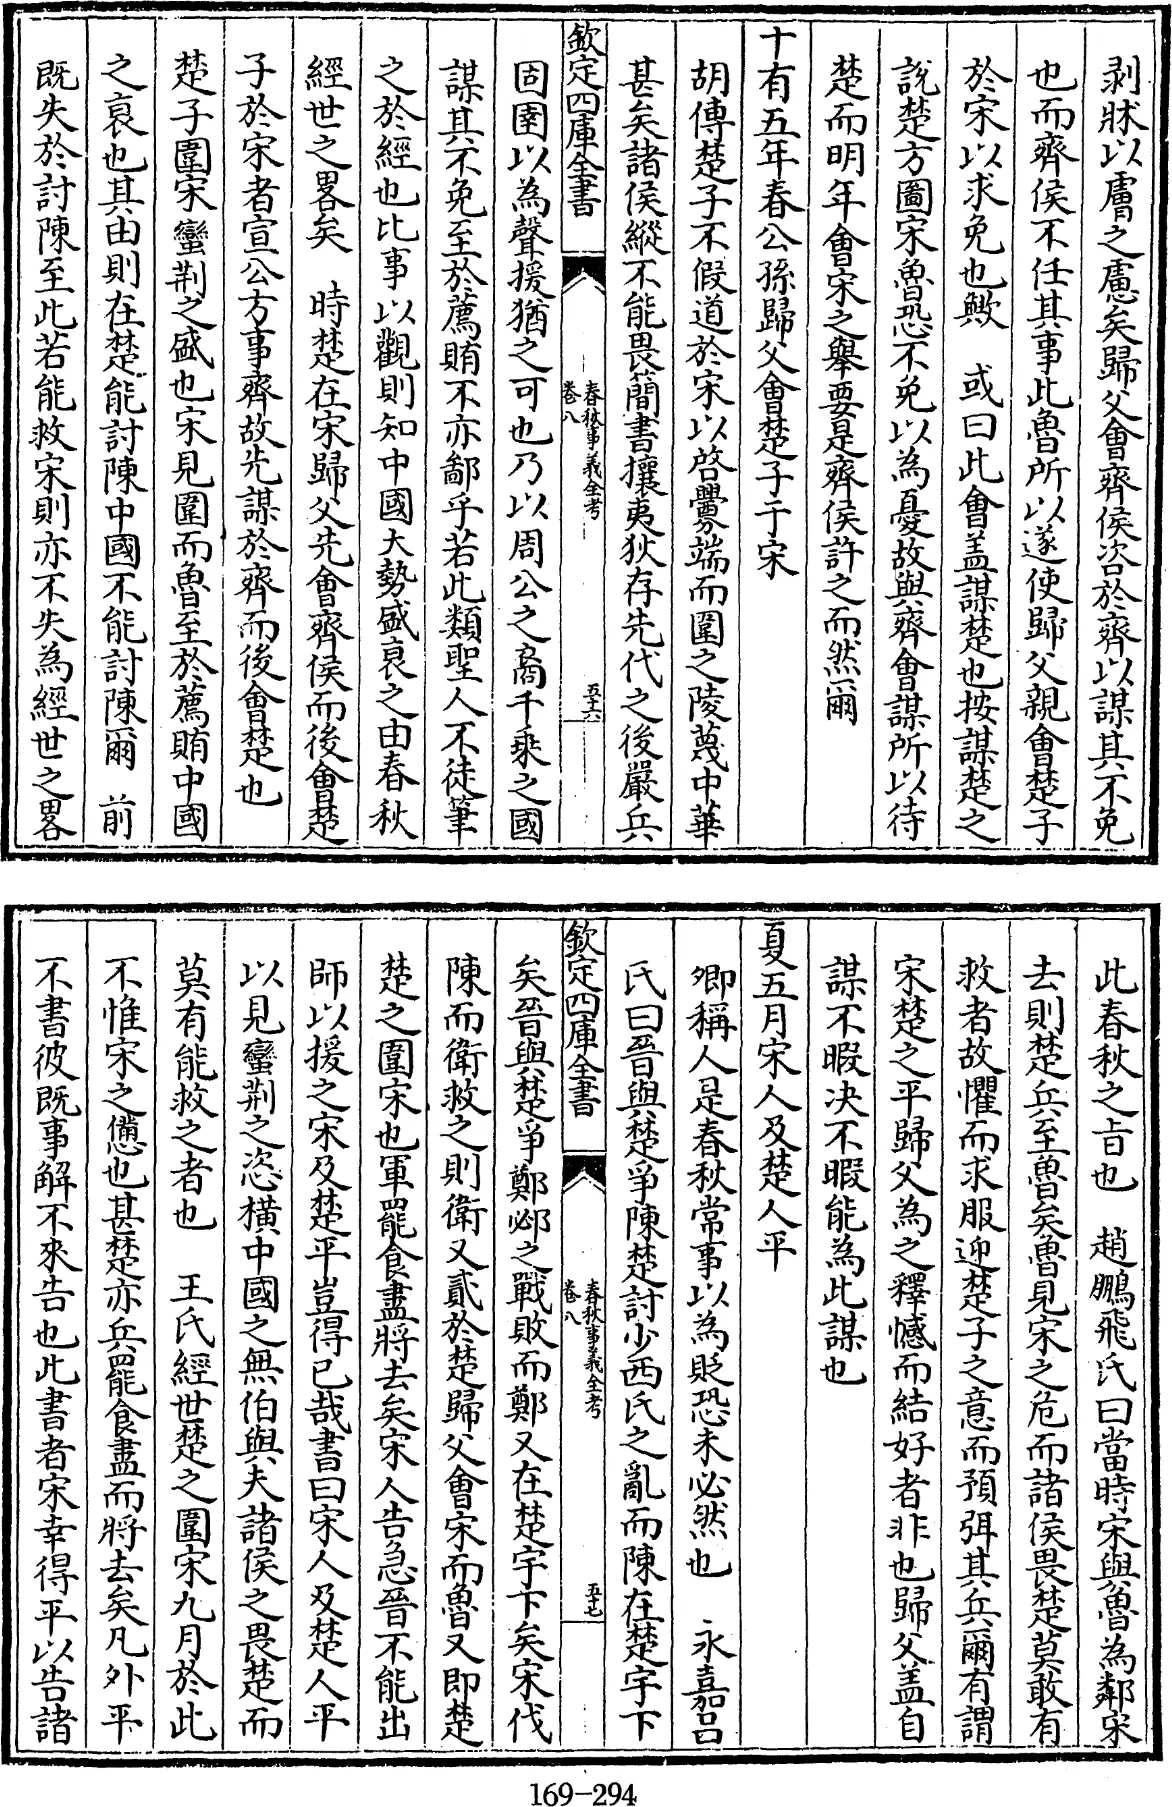 剥牀以膚之慮矣歸父會齊侯咨於齊以謀其不免
也而齊侯不任其事此魯所以遂使歸父親會楚子
於宋以求免也歟　或曰此會盖謀楚也按謀楚之
説楚方圖宋魯恐不免以為憂故與齊會謀所以待
楚而明年會宋之舉要是齊侯許之而然爾
十有五年春公孫歸父會楚子于宋
胡傳楚子不假道於宋以啓釁端而圍之陵蔑中華
甚矣諸侯縱不能畏簡書攘夷狄存先代之後嚴兵
欽定四庫全書
春秋事義全考
卷八
五十六
固圉以為聲援猶之可也乃以周公之裔千乘之國
謀其不免至於薦賄不亦鄙乎若此類聖人不徒筆
之於經也比事以觀則知中國大勢盛衰之由春秋
經世之畧矣　時楚在宋歸父先會齊侯而後會楚
子於宋者宣公方事齊故先謀於齊而後會楚也
楚子圍宋蠻荆之盛也宋見圍而魯至於薦賄中國
之衰也其由則在楚能討陳中國不能討陳爾　前
既失於討陳至此若能救宋則亦不失為經世之畧
此春秋之旨也　趙鵬飛氏曰當時宋與魯為鄰宋
去則楚兵至魯矣魯見宋之危而諸侯畏楚莫敢有
救者故懼而求服迎楚子之意而預弭其兵爾有謂
宋楚之平歸父為之釋憾而結好者非也歸父盖自
謀不暇决不暇能為此謀也
夏五月宋人及楚人平
卿稱人是春秋常事以為貶恐未必然也　永嘉吕
氏曰晉與楚爭陳楚討少西氏之亂而陳在楚宇下
欽定四庫全書
春秋事義全考
卷八
五十七
矣晉與楚爭鄭邲之戰敗而鄭又在楚宇下矣宋伐
陳而衛救之則衛又貳於楚歸父會宋而魯又即楚
楚之圍宋也軍罷食盡將去矣宋人告急晉不能出
師以援之宋及楚平豈得已哉書曰宋人及楚人平
以見蠻荆之恣横中國之無伯與夫諸侯之畏楚而
莫有能救之者也　王氏經世楚之圍宋九月於此
不惟宋之憊也甚楚亦兵罷食盡而將去矣凡外平
不書彼既事解不來告也此書者宋幸得平以告諸
169-294